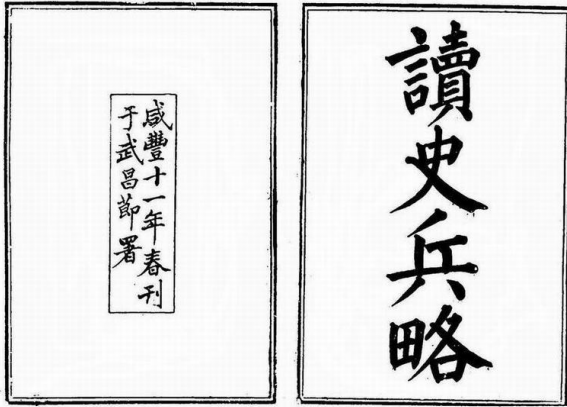 讀史兵略
咸豐十一年春刊
于武昌節署